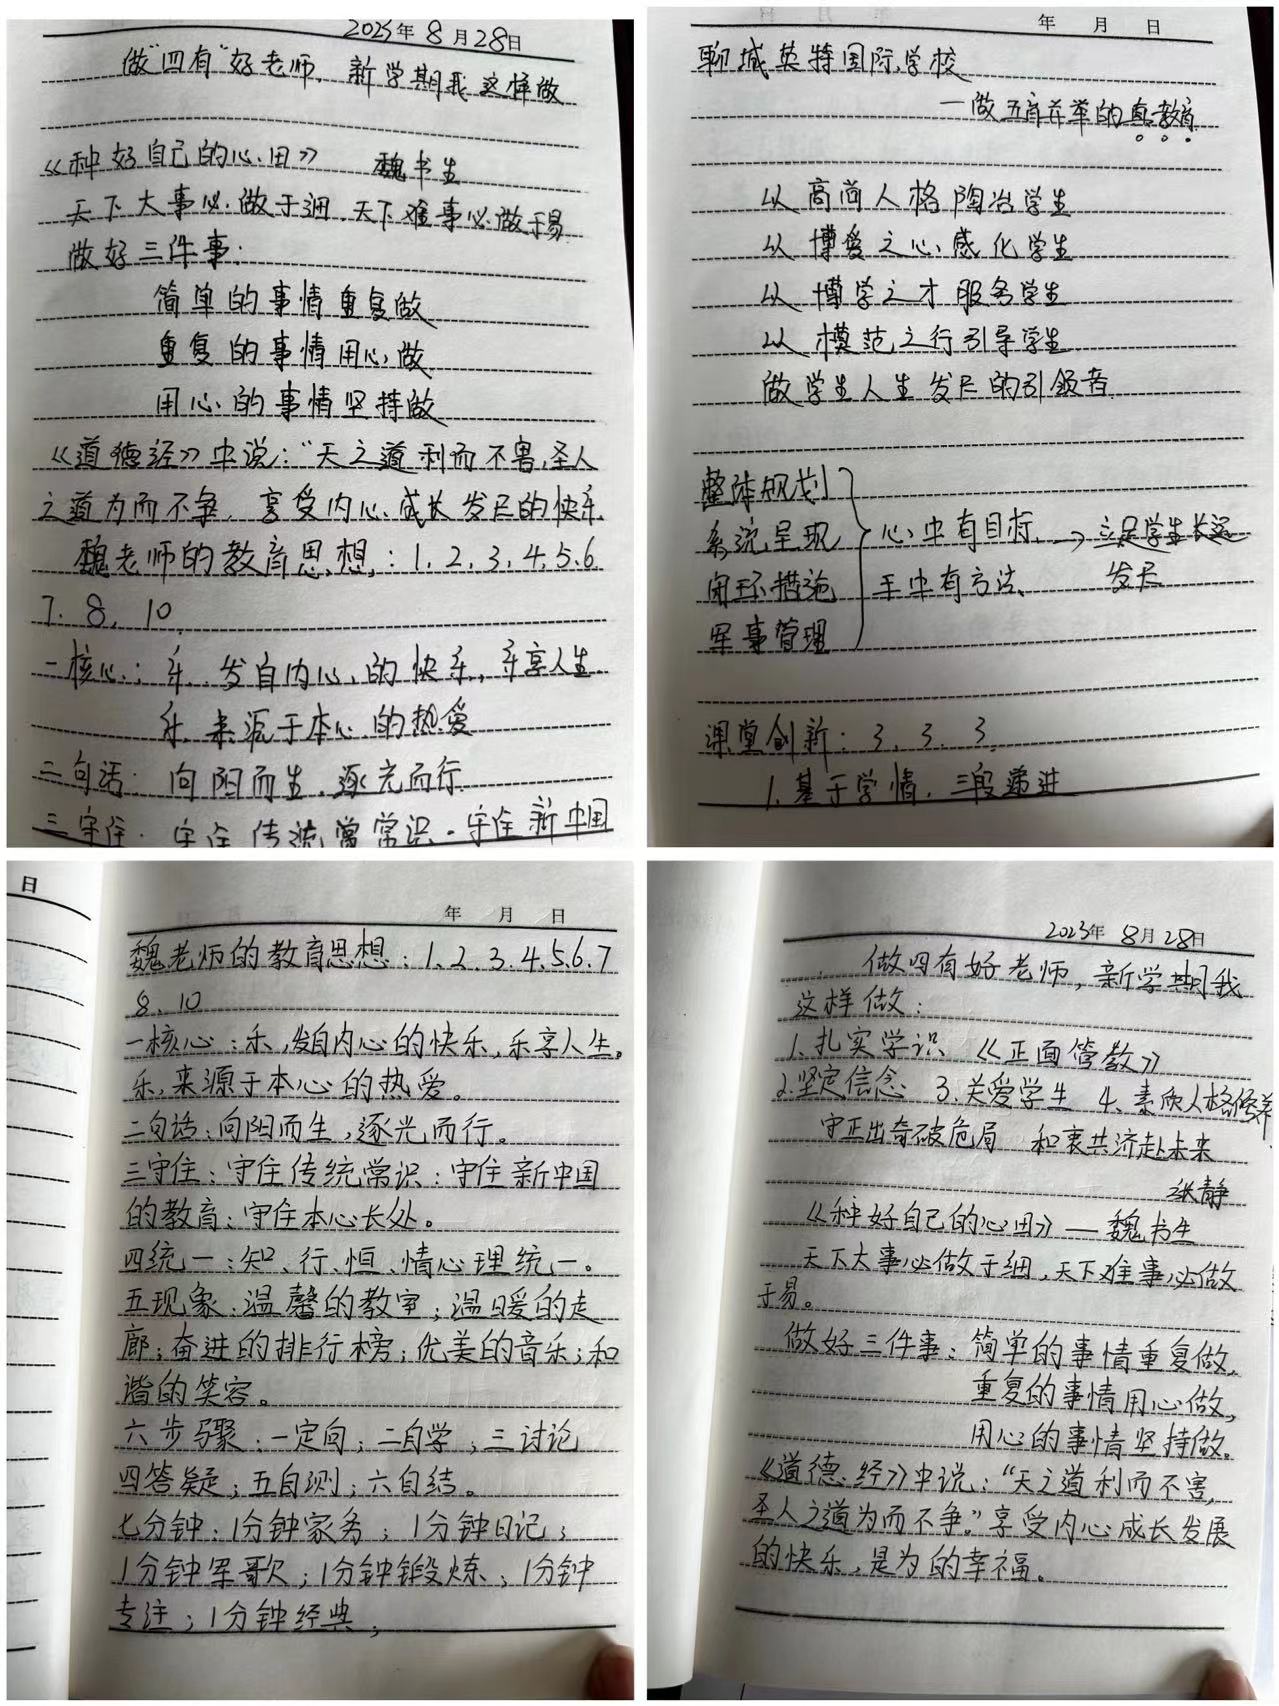 2023年 8月28日
做"四有"好老师，新学期我这样做
《种好自己的心田》 魏书生
天下大事必做于细，天下难事必做于易
做好三件事：
简单的事情重复做
重复的事情用心做
用心的事情坚持做
《道德经》中说："天之道利而不害，圣人
之道为而不争，享受内心成长发展的快乐
魏老师的教育思想：1、2、3、4、5、6
7、8、10
一核心：乐，发自内心的快乐，乐享人生
乐，来源于本心的热爱
二句话：向阳而生，逐光而行
三守住：守住传统常识。守住新中国
年 月 日
聊城英特国际学校
—做五育并举的真教育
以高尚人格陶冶学生
以博爱之心感化学生
以博学之才服务学生
以模范之行引导学生
做学生人生发展的引领者
整体规划
系统呈现 心中有目标 → 立足学生长远
闭环措施 手中有方法 发展
军事管理
课堂创新：3、3、3
1、基于学情，三段递进
日
年 月 日
魏老师的教育思想：1、2、3、4、5、6、7
8、10
一核心：乐，发自内心的快乐，乐享人生。
乐，来源于本心的热爱。
二句话：向阳而生，逐光而行。
三守住：守住传统常识；守住新中国
的教育；守住本心长处。
四统一：知、行、恒、情心理统一。
五现象：温馨的教室；温暖的走
廊；奋进的排行榜；优美的音乐；和
谐的笑容。
六步骤：一定向；二自学；三讨论
四答疑；五自测；六自结。
七分钟：1分钟家务；1分钟日记；
1分钟军歌；1分钟锻炼；1分钟
专注；1分钟经典；
2023年 8月28日
做四有好老师，新学期我
这样做：
1、扎实学识 《正面管教》
2.坚定信念 3.关爱学生 4、素质人格修养
守正出奇破危局 和衷共济赴未来
张静
《种好自己的心田》—魏书生
天下大事必做于细，天下难事必做
于易。
做好三件事：简单的事情重复做，
重复的事情用心做，
用心的事情坚持做。
《道德经》中说："天之道利而不害，
圣人之道为而不争。"享受内心成长发展
的快乐，是为的幸福。